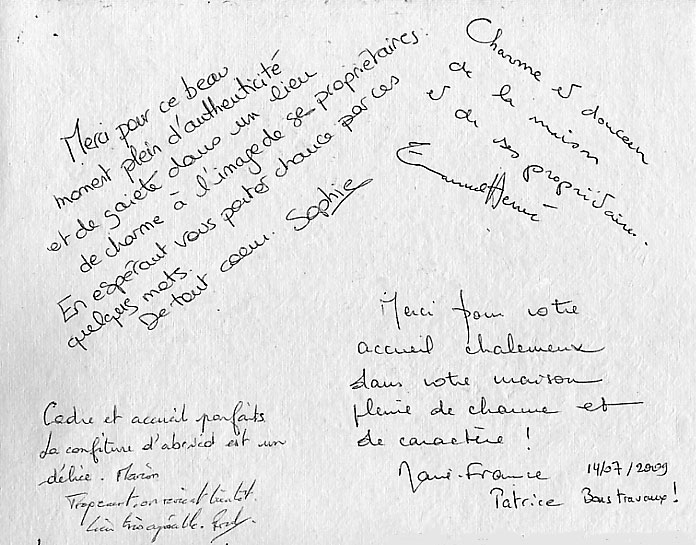 Merci pour ce beau
moment plein d'authenticité
et de gaieté dans un lieu
de charme à l'image de se propriétaires.
En espérant vous porter chance par ces
quelques mots.
De tout coeur. Sophie
Charme et douceur
de la maison
et de ses propriétaires.
Merci pour votre
accueil chaleureux
dans votre maison
pleine de charme et
de caractère !
Marie-France 14/07/2009
Patrice Bons travaux !
Cadre et accueil parfaits
La confiture d'abricot est un
délice. Marion
on revient bientôt.
Lieu très agréable.